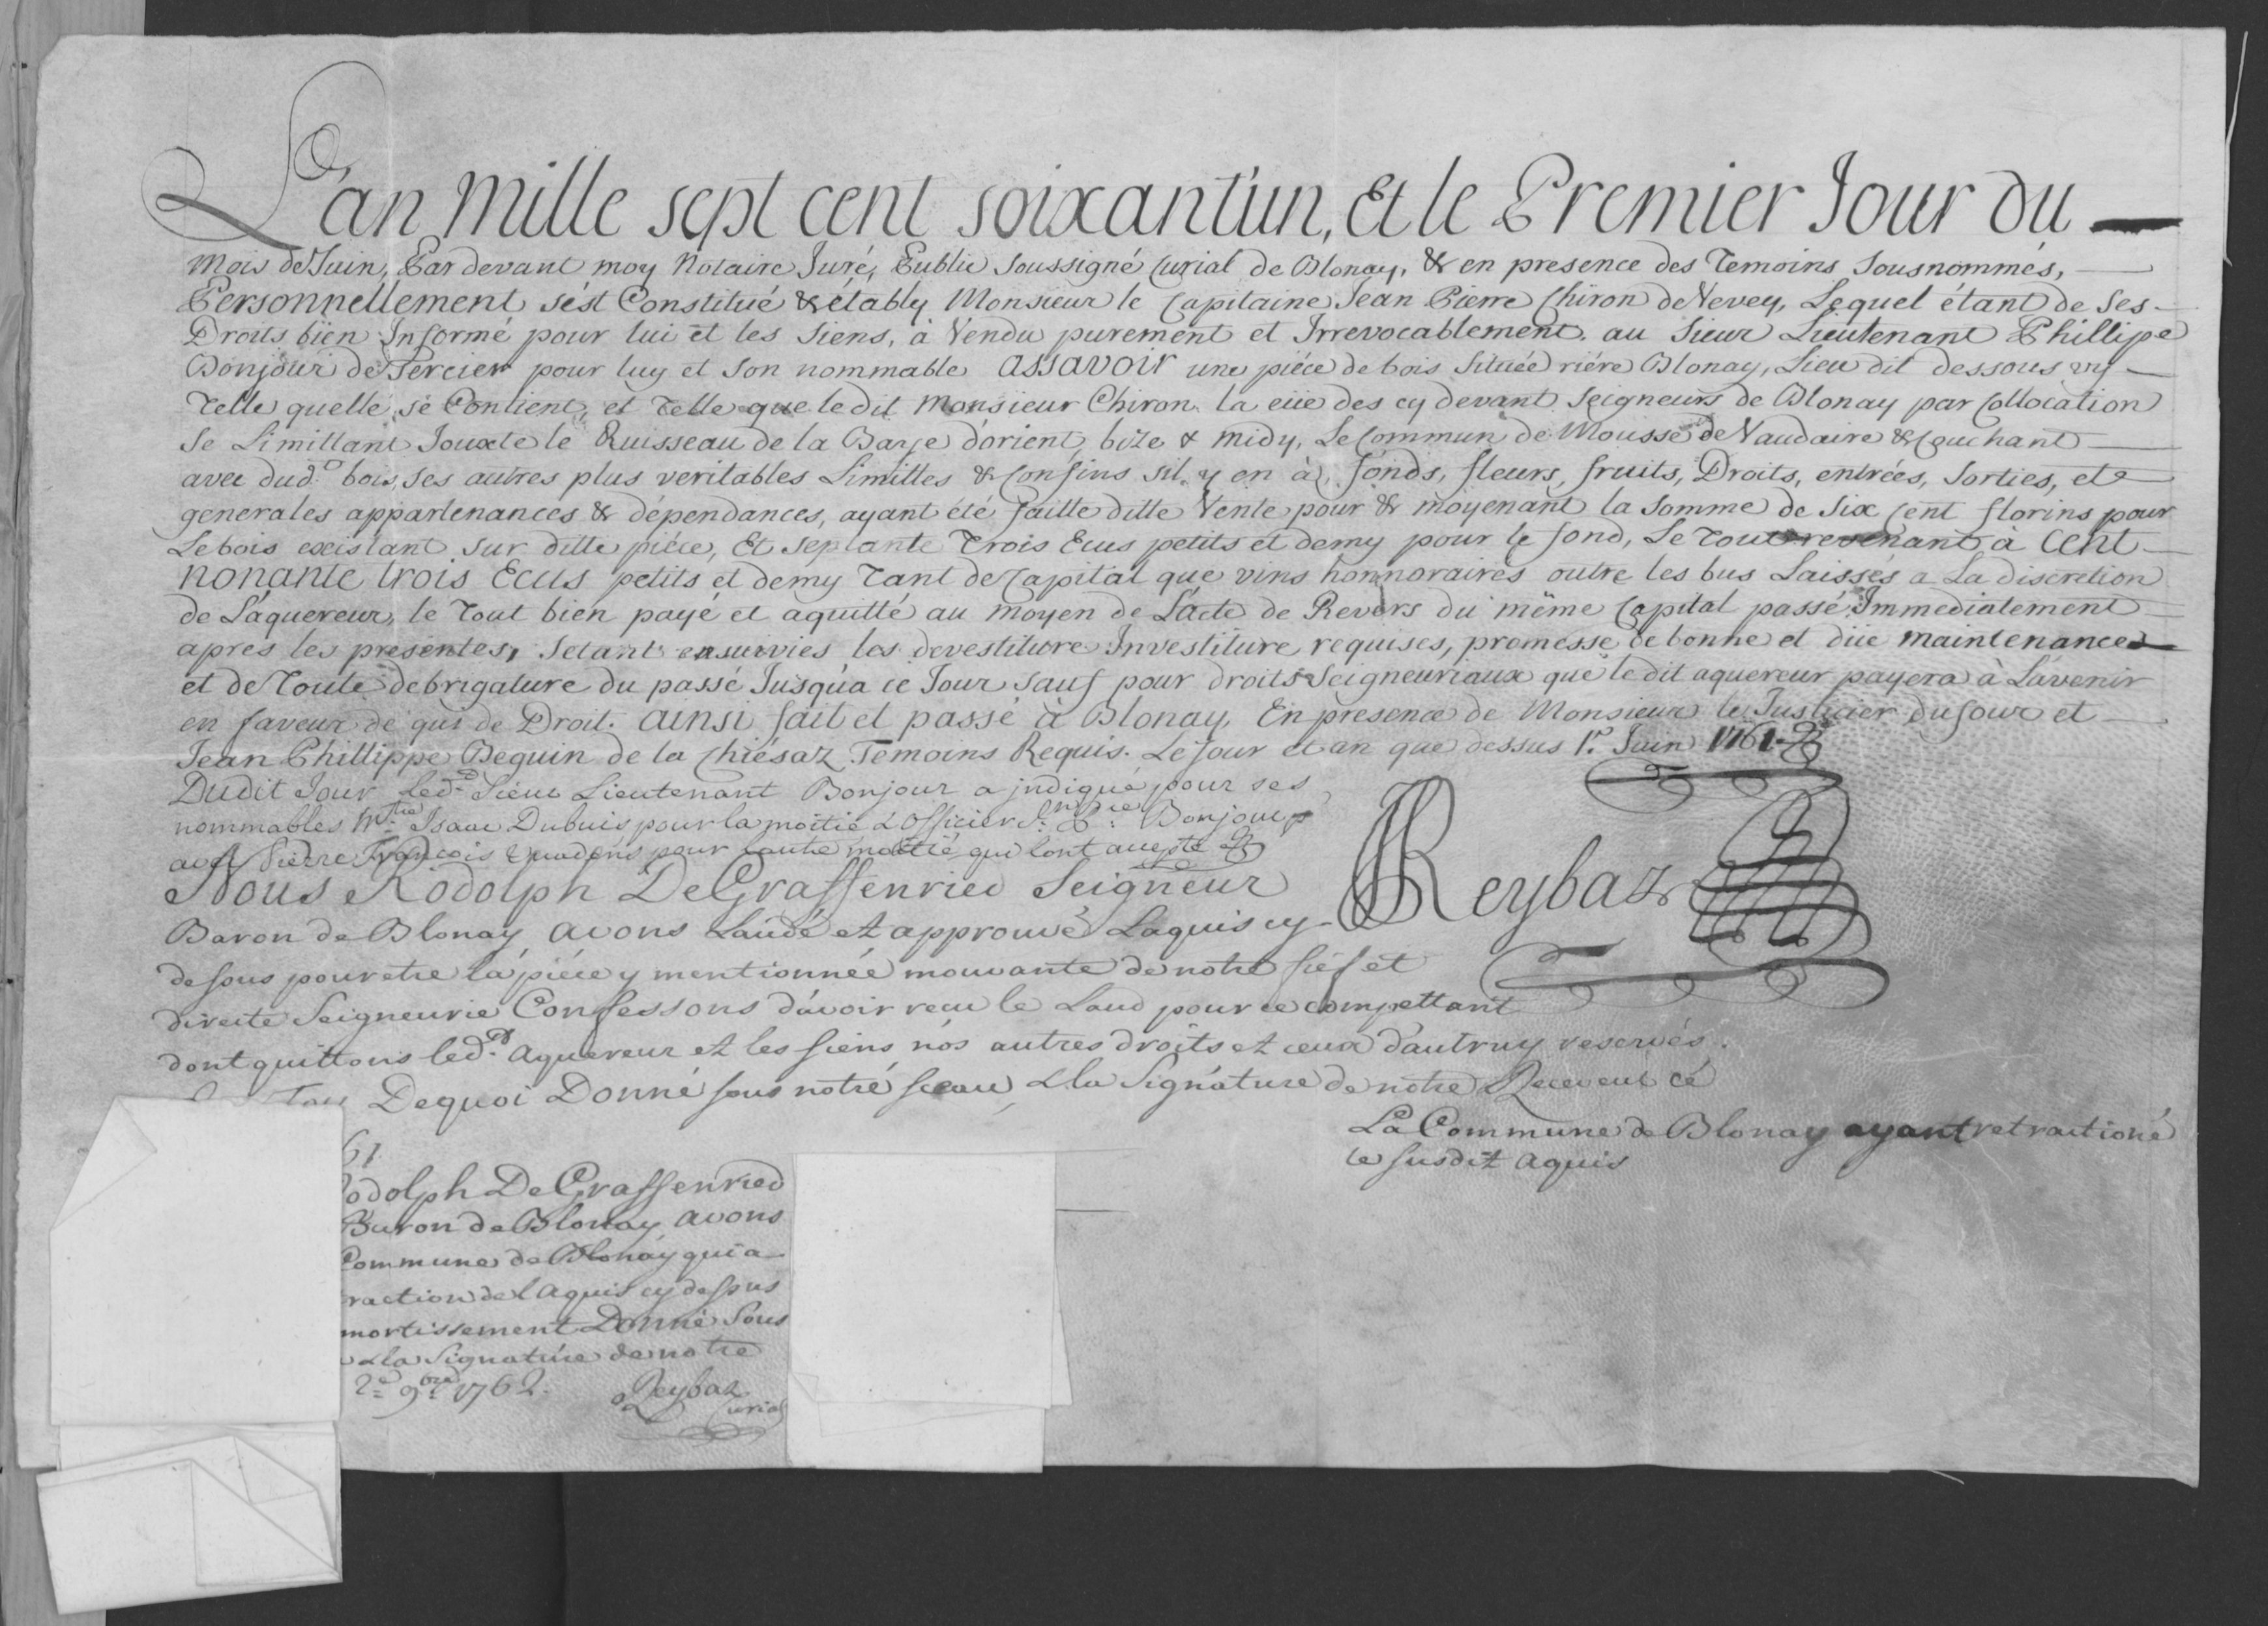 L'an mille sept cent soixant'un, Et le Premier Jour du
mois de Juin, Par devant moy Notaire Juré, Public soussigné Curial de Blonay, & en presence des Temoins sousnommés,
Personnellement s'ést Constitué & étably Monsieur le Capitaine Jean Pierre Chiron de Vevey, Lequel étant de ses
Droits bien Informé pour lui et les siens, à Vendu purement et Irrevocablement au Sieur Lieutenant Phillipe
Bonjour de Tercier pour luy et son nommable assavoir une piéce de bois située riére Blonay, Lieu dit dessous
Telle quelle se Contient, et Telle que le dit Monsieur Chiron la eüe des cy devant Seigneurs de Blonay par Collocation
se Limittant Jouxte le Ruisseau de la Baye d'orient, bize & midy, Le Commun de Mousse de Vaudaire & Couchant
avec dud.t bois, ses autres plus veritables Limittes & Confins sil y en à, fonds, fleurs, fruits, Droits, entrées, sorties, et
generales appartenances & dépendances, ayant été faitte ditte Vente pour & moyenant la somme de six Cent florins pour
Le bois existant sur ditte piéce, Et septante Trois Ecus petits et demy pour le fond, Le Tout revenant à Cent
nonante trois Ecus petits et demy Tant de Capital que vins honnoraires outre les bus Laisses a La discretion
de L'aquereur, le Tout bien payé et aquitté au moyen de L'acte de Revers du même Capital passé Immediatement
apres les presentes, s'etant ensuivies les devestiture Investiture requises, promesse de bonne et düe maintenance
et de Toute debrigature du passé Jusqu'a ce Jour sauf pour droits Seigneuriaux que le dit aquereur payera à L'avenir
en faveur de qui de Droit. ainsi fait et passé à Blonay, En presence de Monsieur le Justicier Dufour et
Jean Phillippe Beguin de la Chiésaz Temoins Requis. Le Jour et an que dessus 1.r Juin 1761.
Dudit Jour led.t Sieur Lieutenant Bonjour a jndiqué pour ses
nommables Isaac Dubuis pour la moitié & L'officier Bonjour
avec Pierre François pour l'autre moitié qui l'ont accepté
Reybaz
Nous Rodolph De Graffenried Seigneur
Baron de Blonay, avons Laudé et approuvé L'aquis cy
dessus pour etre la piéce y mentionnée mouvante de notre fief et
directe Seigneurie Confessons d'avoir recu le Laud pour ce compettant
dont quittons led.t aquereur et les siens nos autres droits et ceux d'autruy reservés.
Dequoi Donné sous notre sceau, & la Signature de notre Receveur cé
61
La Commune de Blonay ayant retractioné
le susdit aquis
odolph De Graffenried
Baron de Blonay avons
Commune de Blonay qui a
raction de l'aquis cy dessus
mortissement Donné sous
& la Signature de notre
2.e 9.bre 1762.
Reybaz
Curial